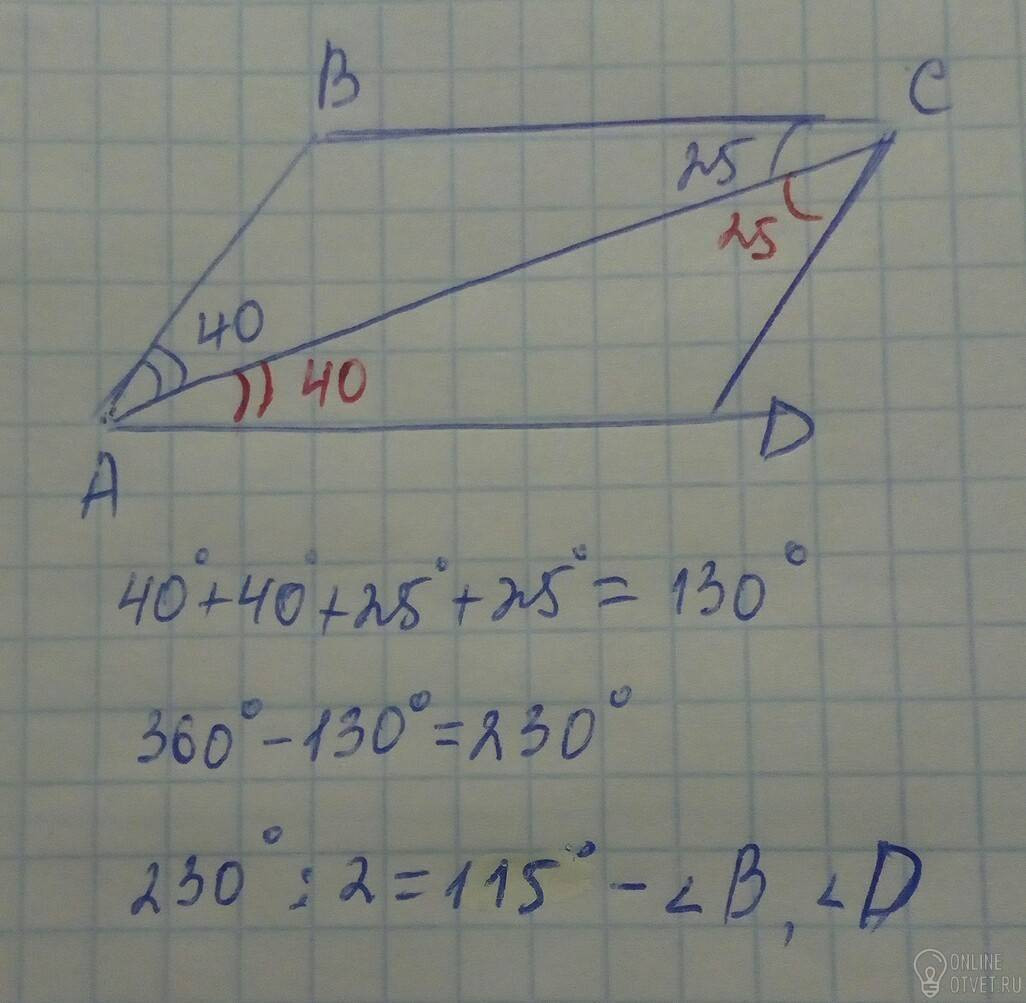 B
C
25
25
40
40
A
D
40°+40°+25°+25°= 130°
360°-130°=230°
230° : 2=115° - ∠B, ∠D
ONLINE
OTVET.RU